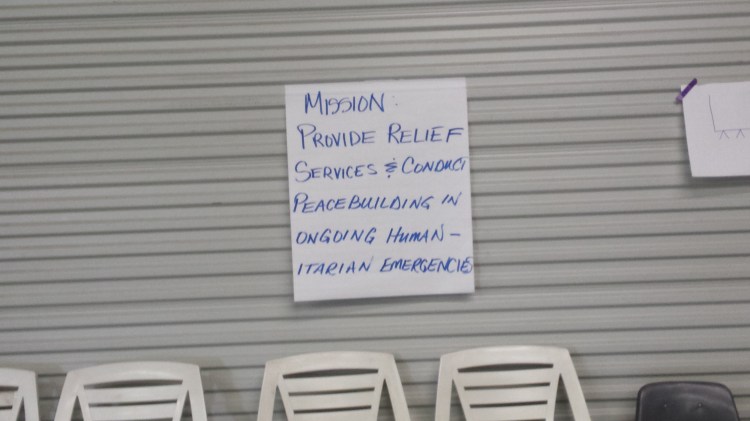 MISSION:
PROVIDE RELIEF
SERVICES & CONDUCT
PEACEBUILDING IN
ONGOING HUMAN-
ITARIAN EMERGENCIES